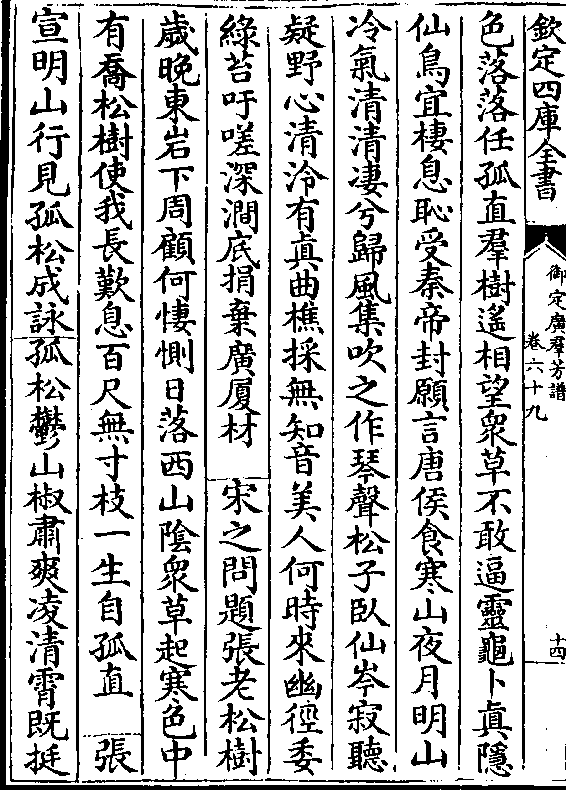 欽定四庫全書
御定廣羣芳譜
卷六十九
十四
色落落任孤直羣樹遙相望衆草不敢逼靈龜卜真隱
仙鳥宜棲息恥受秦帝封願言唐侯食寒山夜月明山
冷氣清清淒兮歸風集吹之作琴聲松子臥仙岑寂聽
疑野心清泠有真曲樵採無知音美人何時來幽徑委
綠苔吁嗟深澗底捐棄廣厦材　宋之問題張老松樹
歲晚東岩下周顧何悽惻日落西山陰衆草起寒色中
有喬松樹使我長歎息百尺無寸枝一生自孤直　張
宣明山行見孤松成詠孤松鬱山椒肅爽凌清霄既挺